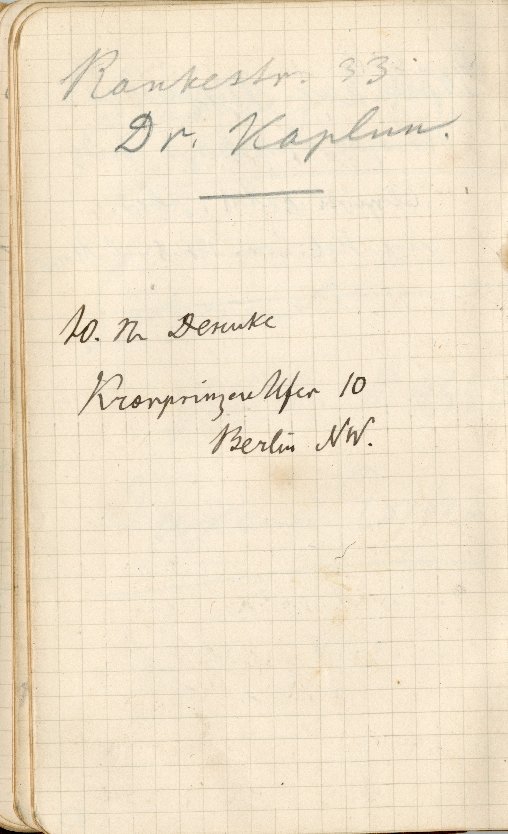 Rankestr. 33
Dr. Kaplun.
Ю. П. Денике
Kronprinzen Ufer 10
Berlin NW.